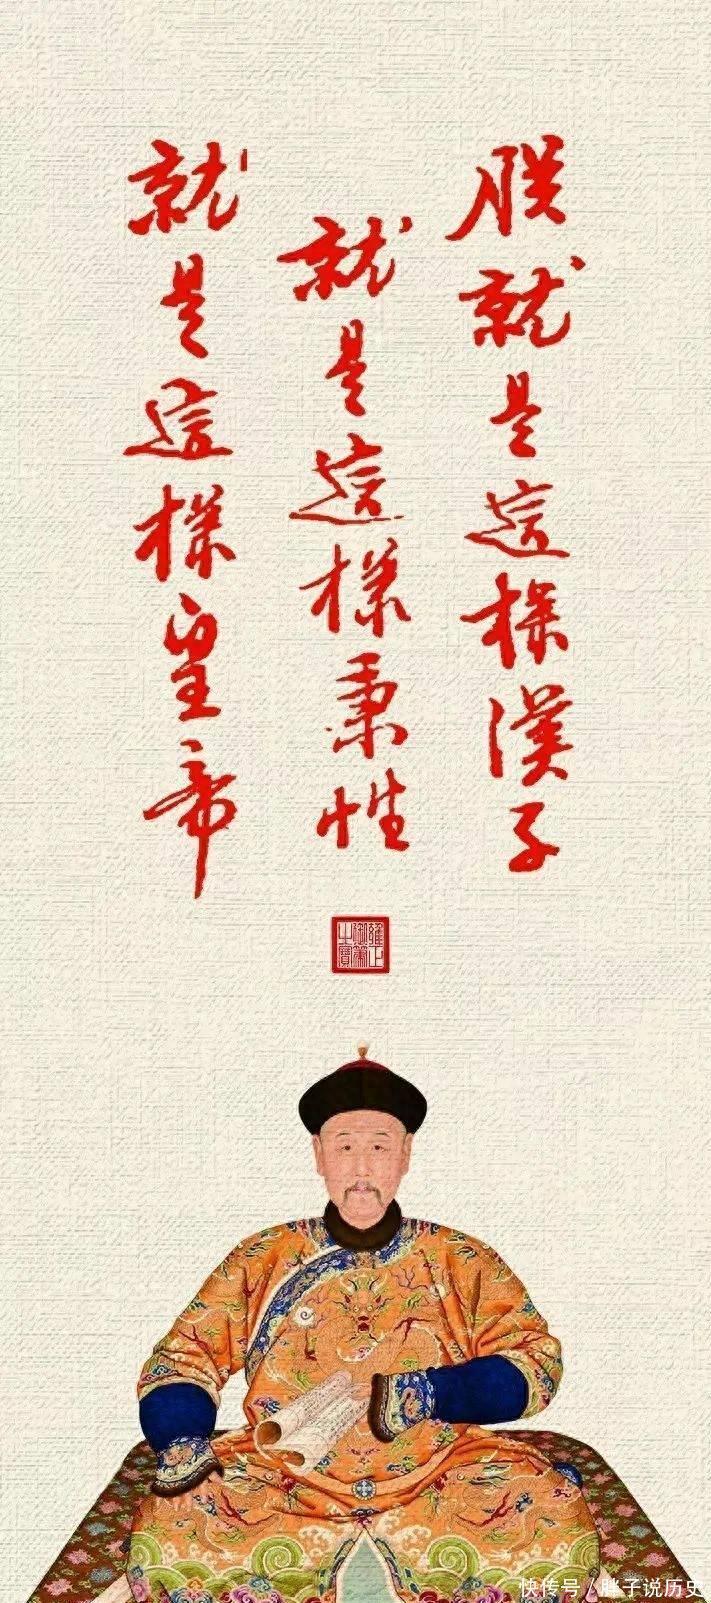 朕就是這樣漢子
就是這樣秉性
就是這樣皇帝
雍正御筆之寶
快传号/胖子说历史